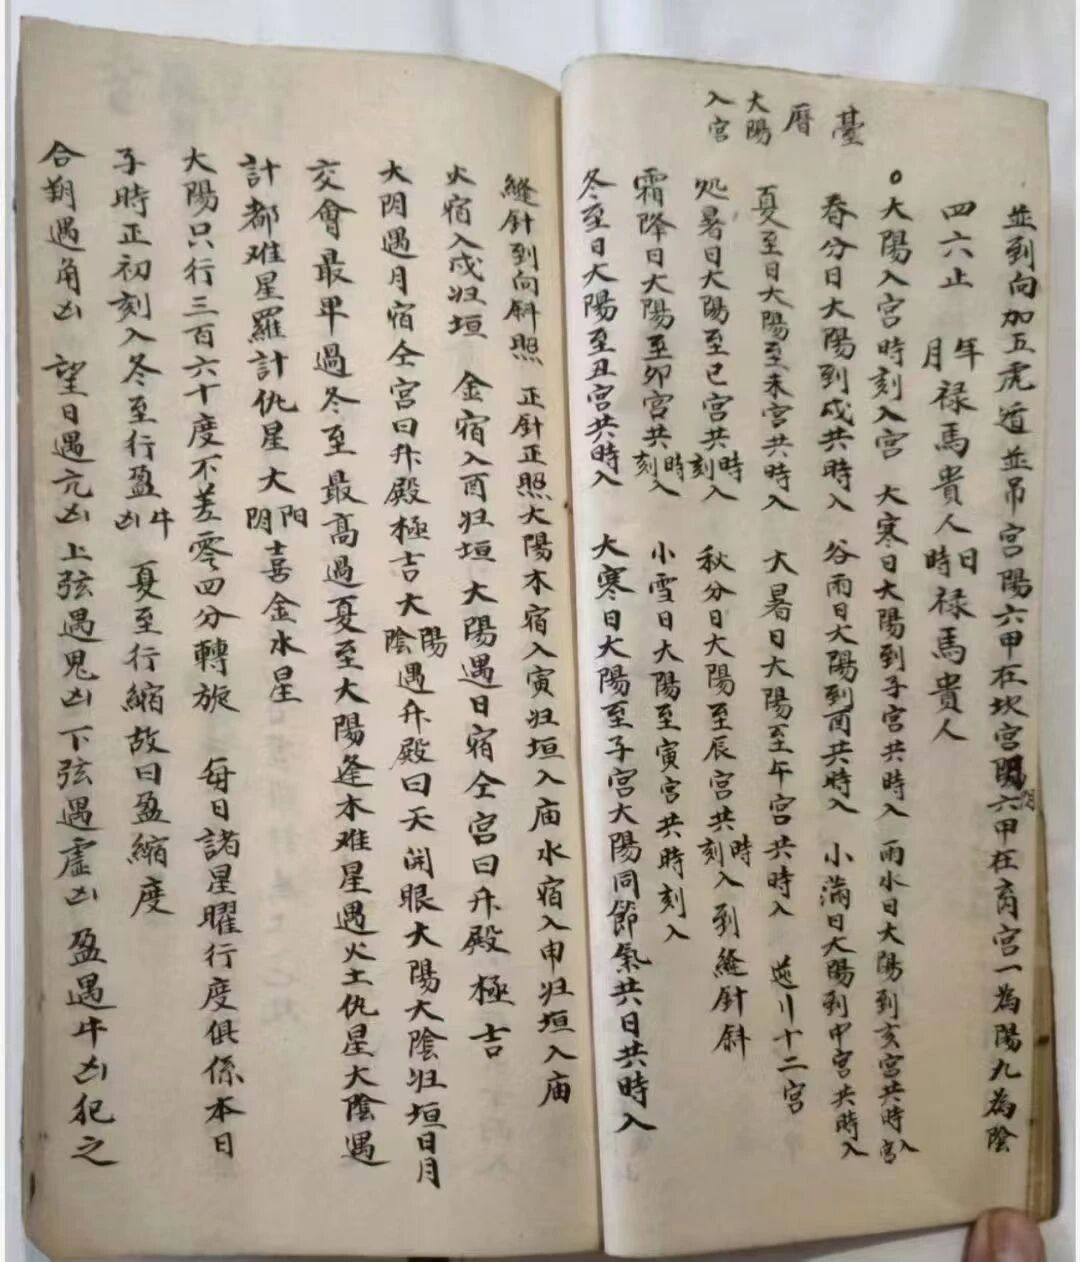 臺曆 大陽入宮
並到向加五虎遁並吊宮陽六甲在坎宮陰六甲在离宮一為陽九為陰
四六止 年月禄馬貴人 日時禄馬貴人
○大陽入宮時刻入宮 大寒日大陽到子宮共時入 雨水日大陽到亥宮共時入宮
春分日大陽到戌共時入 谷雨日大陽到酉共時入 小滿日大陽到申宮共時入
夏至日大陽至未宮共時入 大暑日大陽至午宮共時入 逆川十二宮
処暑日大陽至巳宮共時刻入 秋分日大陽至辰宮共時刻入 到縫針斜
霜降日大陽至卯宮共時刻入 小雪日大陽至寅宮共時刻入
冬至日大陽至丑宮共時入 大寒日大陽至子宮大陽同節氣共日共時入
縫針到向斜照 正針正照大陽木宿入寅归垣入庙水宿入申归垣入庙
火宿入戌归垣 金宿入酉归垣 大陽遇日宿仝宮曰升殿極吉
大阴遇月宿仝宮曰升殿極吉大陽陰遇升殿曰天開眼大陽大陰归垣日月
交會最早過冬至最高過夏至大陽逢木难星遇火土仇星大陰遇
計都难星羅計仇星大阳阴喜金水星
大陽只行三百六十度不差零四分轉旋 每日諸星曜行度俱係本日
子時正初刻入冬至行盈牛凶 夏至行縮故曰盈縮度
合朔遇角凶 望日遇亢凶上弦遇鬼凶下弦遇虚凶 盈遇牛凶犯之